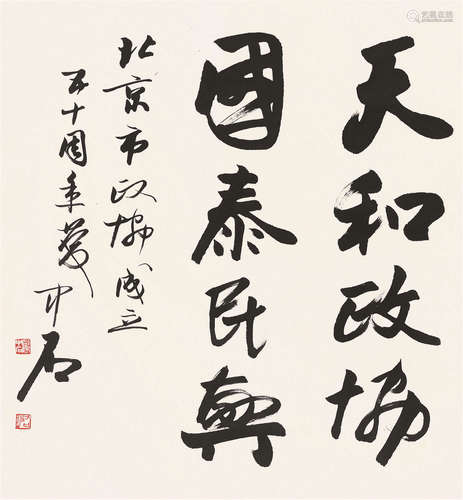 天和政協
國泰民興
北京市政协成立
五十周年
中石